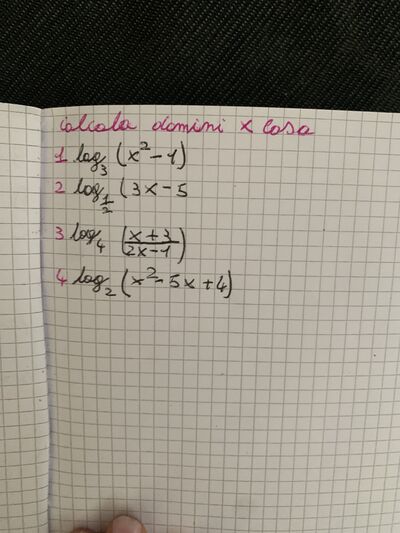 calcola domini x casa
1 log₃ (x² - 1)
2 log_{1/2} (3x - 5
3 log₄ (x+3/2x-1)
4 log₂ (x² - 5x + 4)